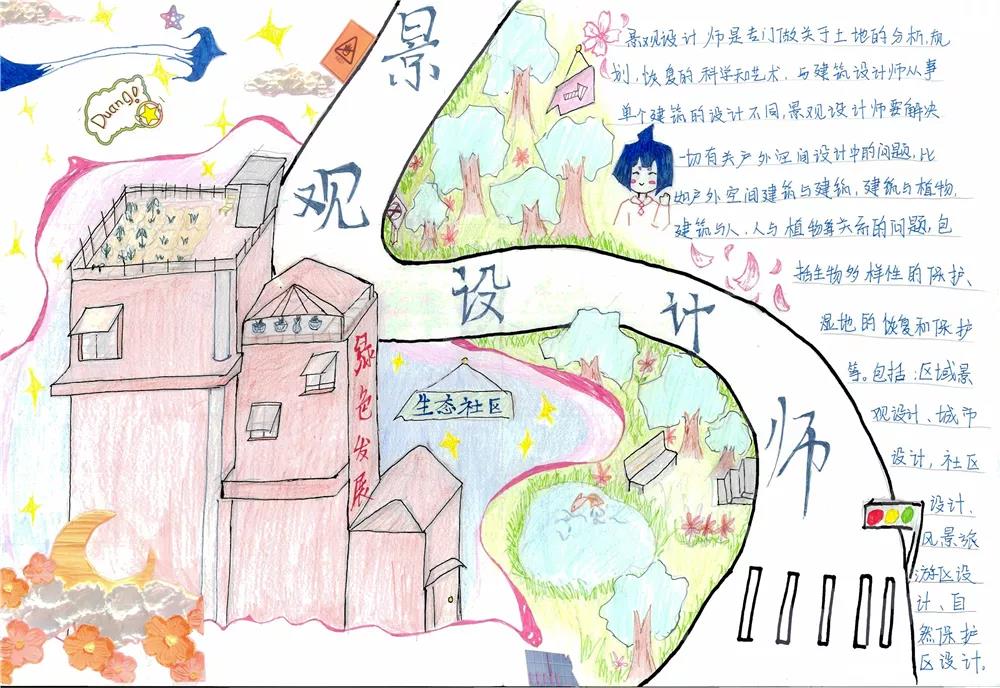 景
观
设
计
师
Duang!
绿
色
发
展
生态社区
景观设计师是专门做关于土地的分析,规
划,恢复的科学和艺术,与建筑设计师从事
单个建筑的设计不同,景观设计师要解决
一切有关户外空间设计中的问题,比
如户外空间建筑与建筑,建筑与植物,
建筑与人、人与植物等关系的问题,包
括生物多样性的保护、
湿地的恢复和保护
等。包括:区域景
观设计、城市
设计,社区
设计、
风景旅
游区设
计、自
然保护
区设计。